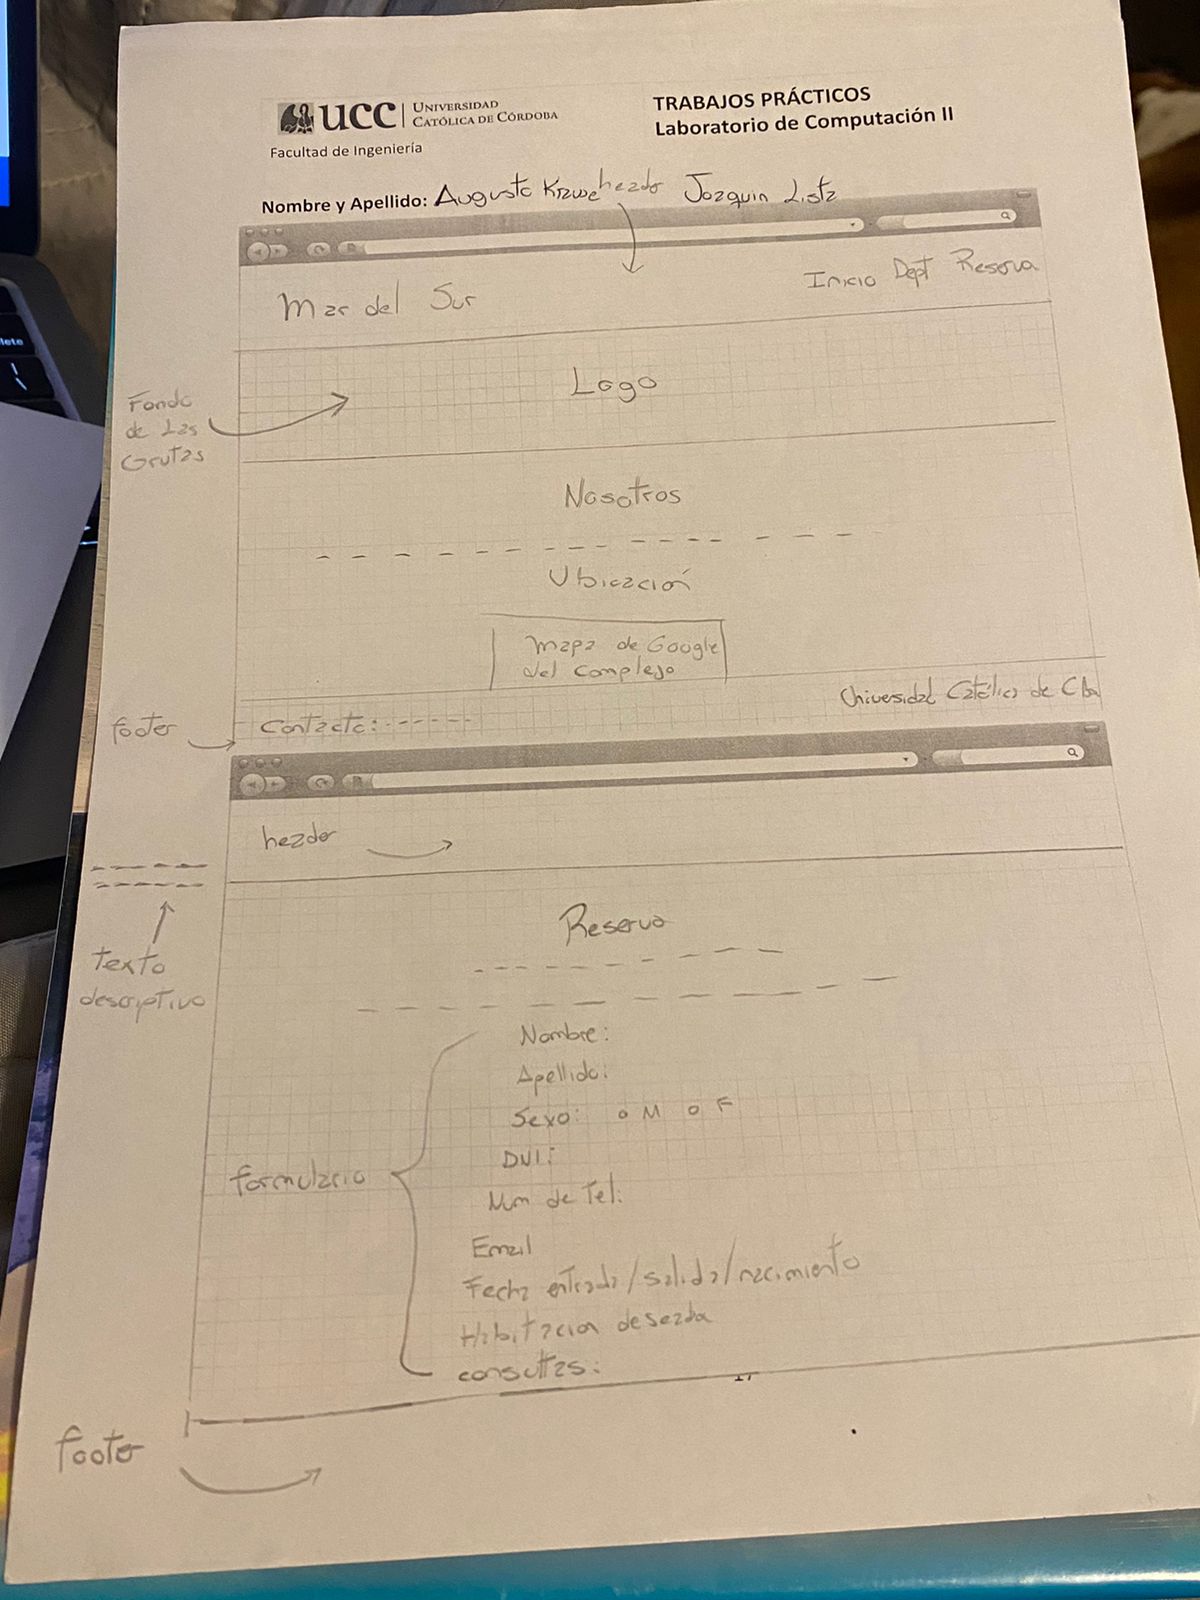 UCC UNIVERSIDAD
CATÓLICA DE CÓRDOBA
Facultad de Ingeniería
TRABAJOS PRÁCTICOS
Laboratorio de Computación II
Nombre y Apellido: Augusto header Joaquin Lista
Mar del Sur
Inicio Dept Reserva
Logo
Fondo
de Las
Grutas
Nosotros
Ubicación
Mapa de Google
del complejo
Universidad Católica de Cba
footer
Contacto:
header
Reserva
texto
descriptivo
Nombre:
Apellido:
Sexo: o M o F
DNI:
Num de Tel:
formulario
Email
Fecha entrada/salida/nacimiento
Habitacion deseada
consultas:
footer